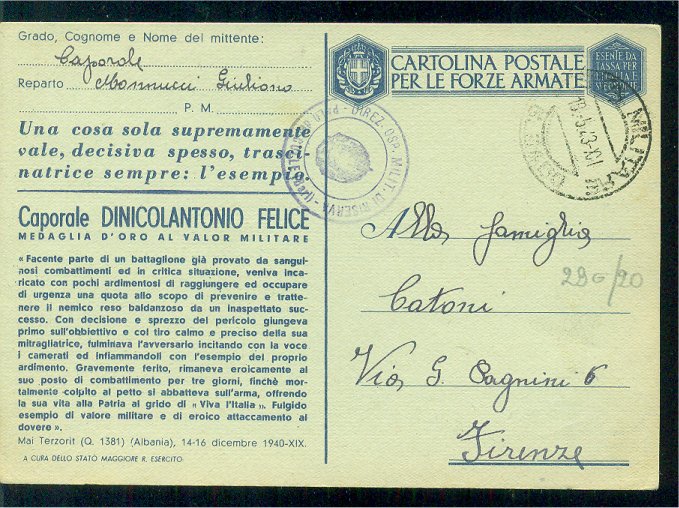 Grado, Cognome e Nome del mittente:
Caporale
Reparto Mannucci Giuliano
P. M.
Una cosa sola supremamente
vale, decisiva spesso, trasci-
natrice sempre: l'esempio.
Caporale DINICOLANTONIO FELICE
MEDAGLIA D'ORO AL VALOR MILITARE
« Facente parte di un battaglione già provato da sangui-
nosi combattimenti ed in critica situazione, veniva inca-
ricato con pochi ardimentosi di raggiungere ed occupare
di urgenza una quota allo scopo di prevenire e tratte-
nere il nemico reso baldanzoso da un inaspettato suc-
cesso. Con decisione e sprezzo del pericolo giungeva
primo sull'obbiettivo e col tiro calmo e preciso della sua
mitragliatrice, fulminava l'avversario incitando con la voce
i camerati ed infiammandoli con l'esempio del proprio
ardimento. Gravemente ferito, rimaneva eroicamente al
suo posto di combattimento per tre giorni, finchè mor-
talmente colpito al petto si abbatteva sull'arma, offrendo
la sua vita alla Patria al grido di « Viva l'Italia ». Fulgido
esempio di valore militare e di eroico attaccamento al
dovere ».
Mai Terzorit (Q. 1381) (Albania), 14-16 dicembre 1940-XIX.
A CURA DELLO STATO MAGGIORE R. ESERCITO
CARTOLINA POSTALE
PER LE FORZE ARMATE
ESENTE DA
TASSA PER
L'ITALIA E
DIREZ. OSP. MILIT. DI RISERVA
MILITARE
Alla famiglia
Catoni
Via G. Pagnini 6
Firenze